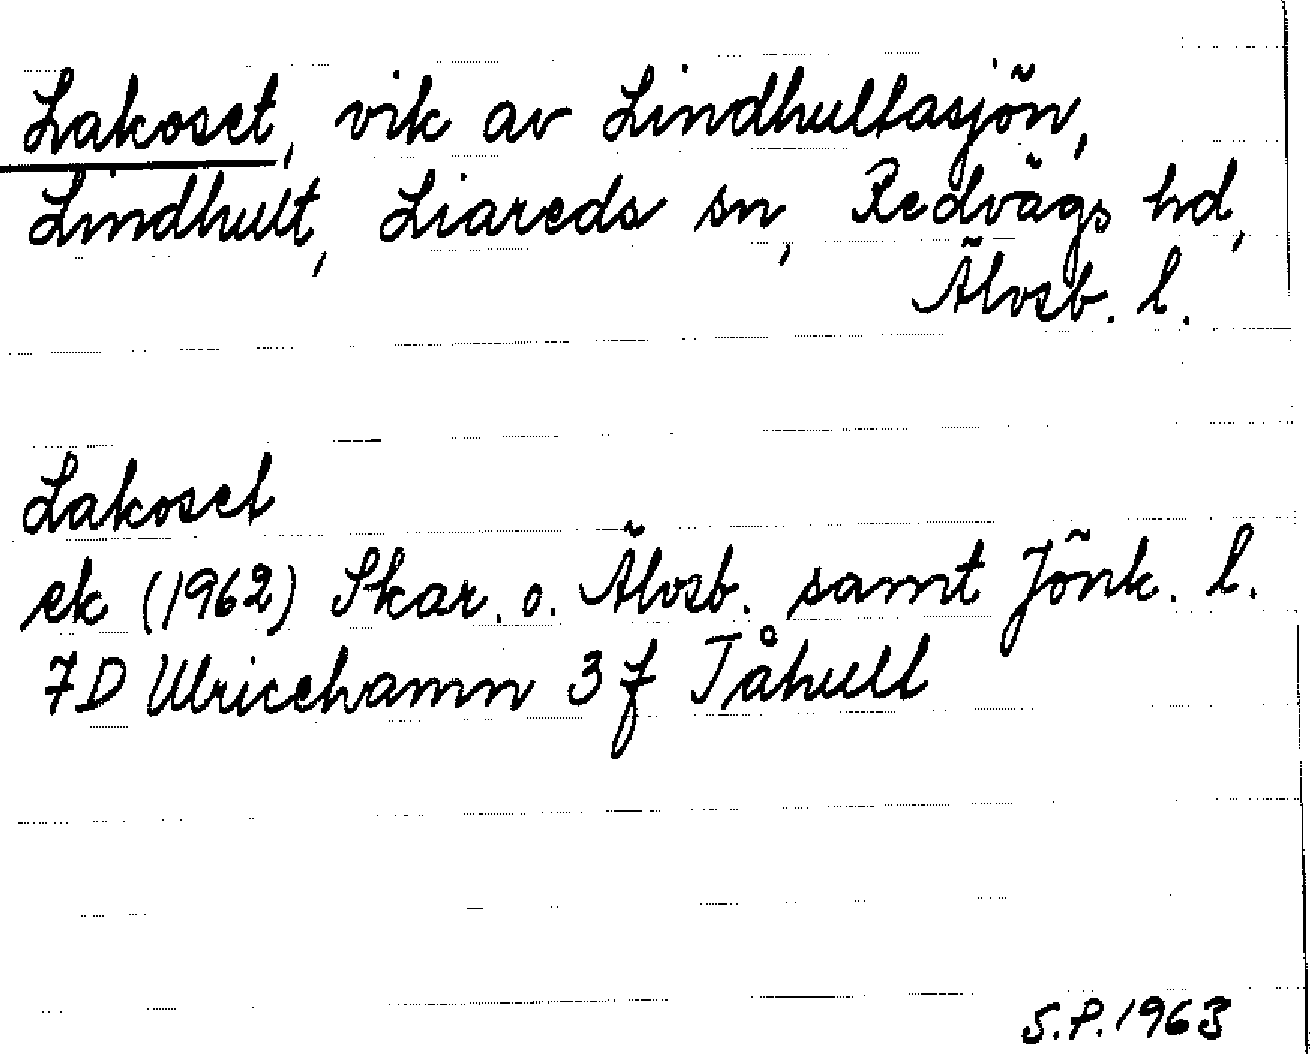 Lakoset, vik av Lindhultasjön,
Lindhult, Liareds sn, Redvägs hd,
Älvsb. l.
Lakoset
ek (1962) Skar. o. Älvsb. samt Jönk. l.
7D Ulricehamn 3 f Tåhull
S.P. 1963